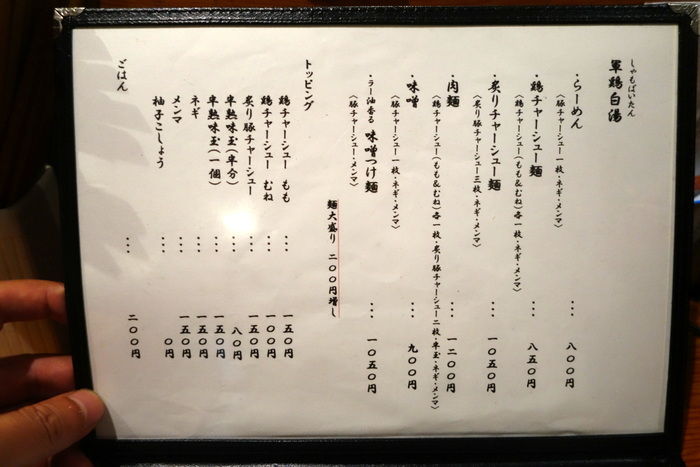 しゃもぱいたん
軍鶏白湯
・らーめん … 八〇〇円
(豚チャーシュー一枚・ネギ・メンマ)
・鶏チャーシュー麺 … 八五〇円
(鶏チャーシュー(もも&むね)各一枚・ネギ・メンマ)
・炙りチャーシュー麺 … 一〇五〇円
(炙り豚チャーシュー三枚・ネギ・メンマ)
・肉麺 … 一二〇〇円
(鶏チャーシュー(もも&むね)各一枚・炙り豚チャーシュー二枚・半玉・ネギ・メンマ)
・味噌 … 九〇〇円
(豚チャーシュー一枚・ネギ・メンマ)
・ラー油香る 味噌つけ麺 … 一〇五〇円
(豚チャーシュー・メンマ)
麺大盛り 二〇〇円増し
トッピング
鶏チャーシュー もも … 一五〇円
鶏チャーシュー むね … 一〇〇円
炙り豚チャーシュー … 一五〇円
半熟味玉(半分) … 八〇円
半熟味玉(一個) … 一五〇円
ネギ … 一五〇円
メンマ … 一五〇円
柚子こしょう … 〇円
ごはん … 二〇〇円